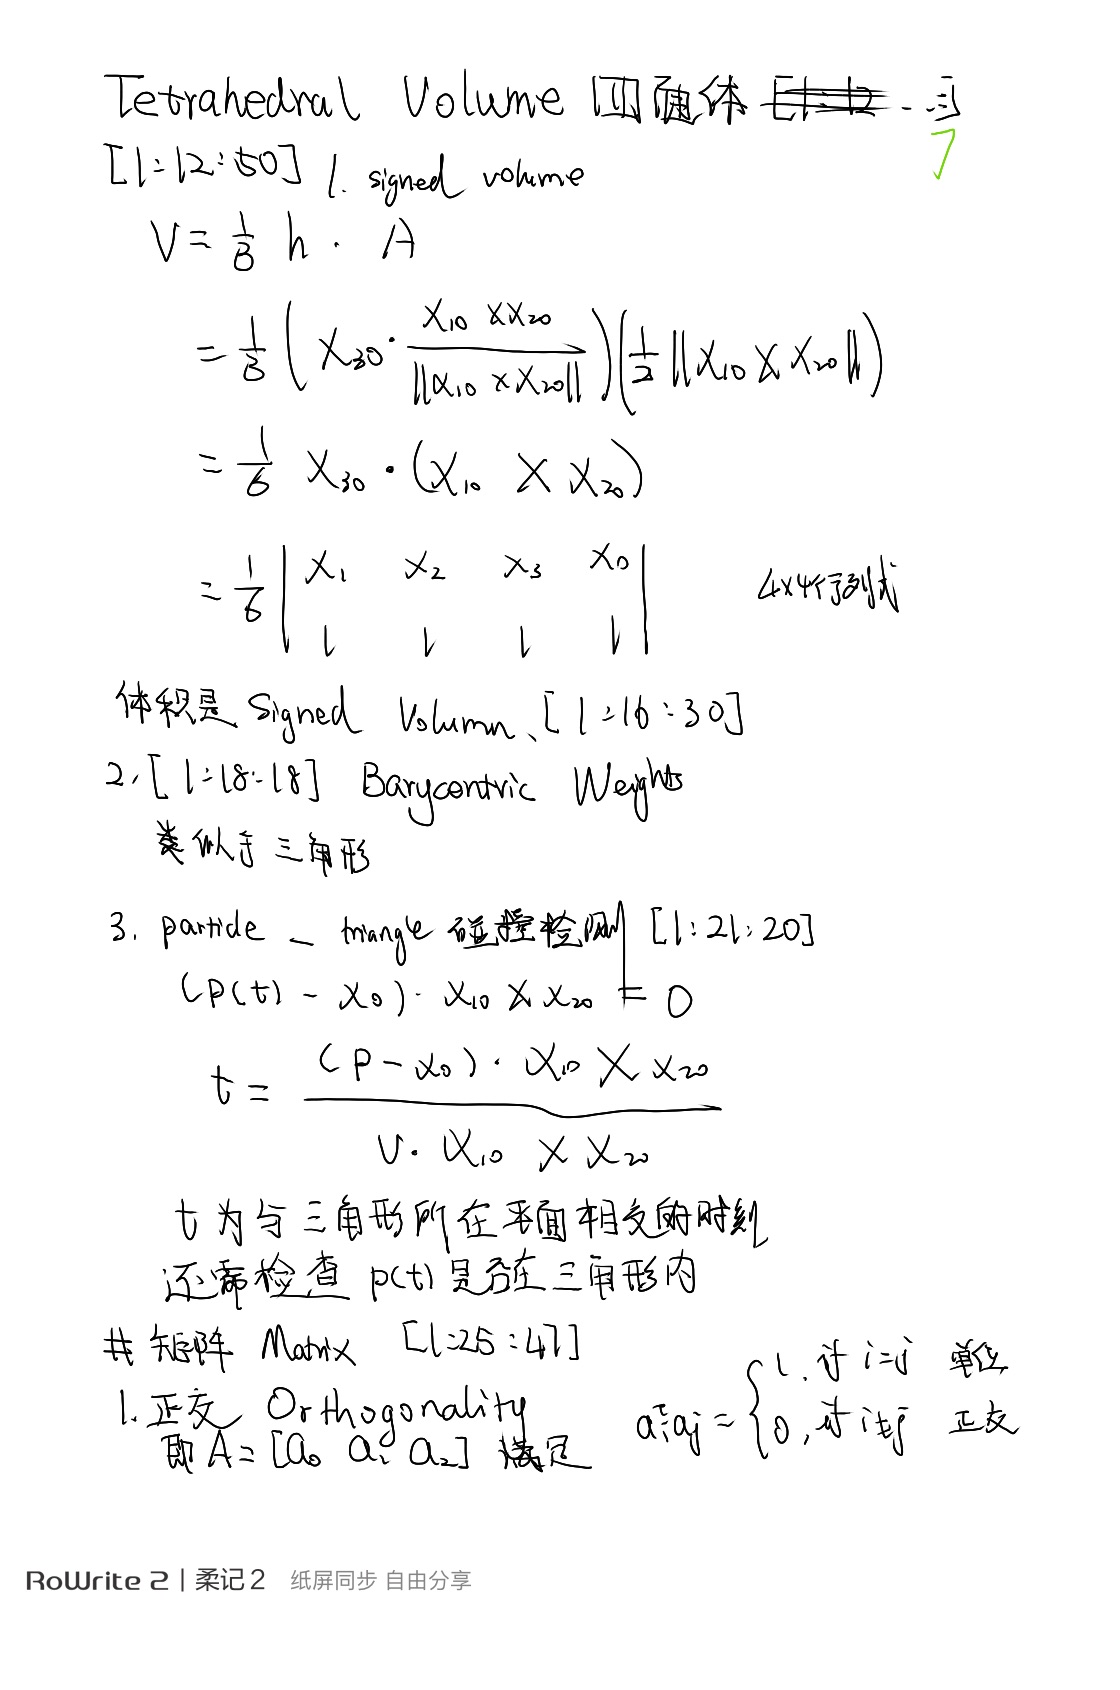 Tetrahedral Volume 四面体
[1:12:50] 1. signed volume
V = 1/3 h · A
= 1/3 (x₃₀ · (x₁₀ × x₂₀) / ||x₁₀ × x₂₀||) (1/2 ||x₁₀ × x₂₀||)
= 1/6 x₃₀ · (x₁₀ × x₂₀)
= 1/6 | x₁ x₂ x₃ x₀ | 4×4行列式
| 1 1 1 1 |
体积是 Signed Volumn、[1:16:30]
2. [1:18:18] Barycentric Weights
类似于三角形
3. particle — triangle 碰撞检测 [1:21:20]
(p(t) - x₀) · x₁₀ × x₂₀ = 0
t = (p - x₀) · x₁₀ × x₂₀ / v · x₁₀ × x₂₀
t 为与三角形所在平面相交的时刻
还需检查 p(t) 是否在三角形内
# 矩阵 Matrix [1:25:47]
1. 正交 Orthogonality
即 A = [a₀ a₁ a₂] 满足 aᵢᵀaⱼ = { 1, if i=j 单位
0, if i≠j 正交
RoWrite 2 | 柔记 2 纸屏同步 自由分享